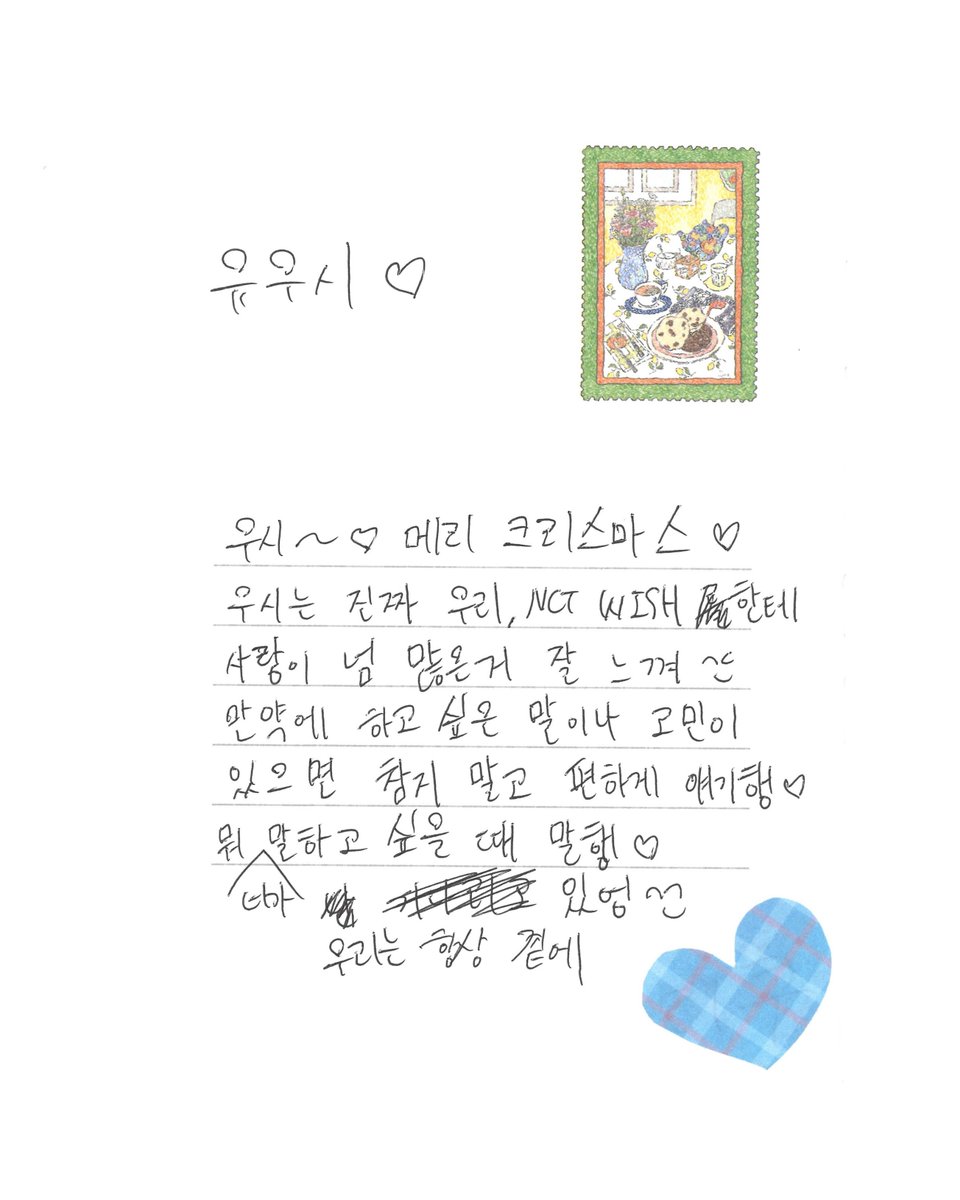 유우시 ♡
우시~ ♡ 메리 크리스마스 ♡
우시는 진짜 우리, NCT WISH 한테
사랑이 넘 많은거 잘 느껴
만약에 하고 싶은 말이나 고민이
있으면 참지 말고 편하게 얘기행♡
뭐 말하고 싶을 때 말행♡
있엉
우리는 항상 곁에